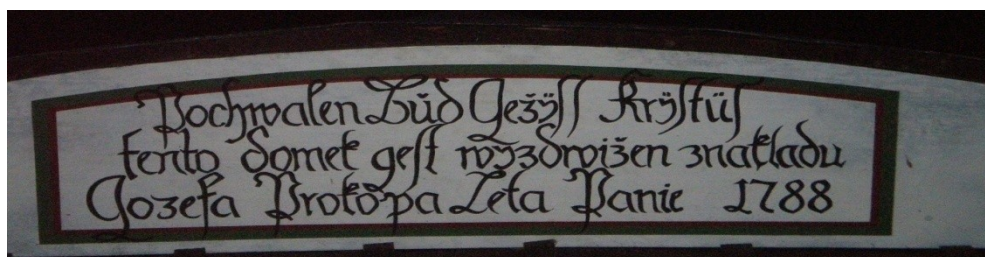 Pochwalen Bůd Gežÿſſ Krÿſtůſ
tento domek geſt wÿzdwižen znakladu
Gozefa Prokopa Leta Panie 1788